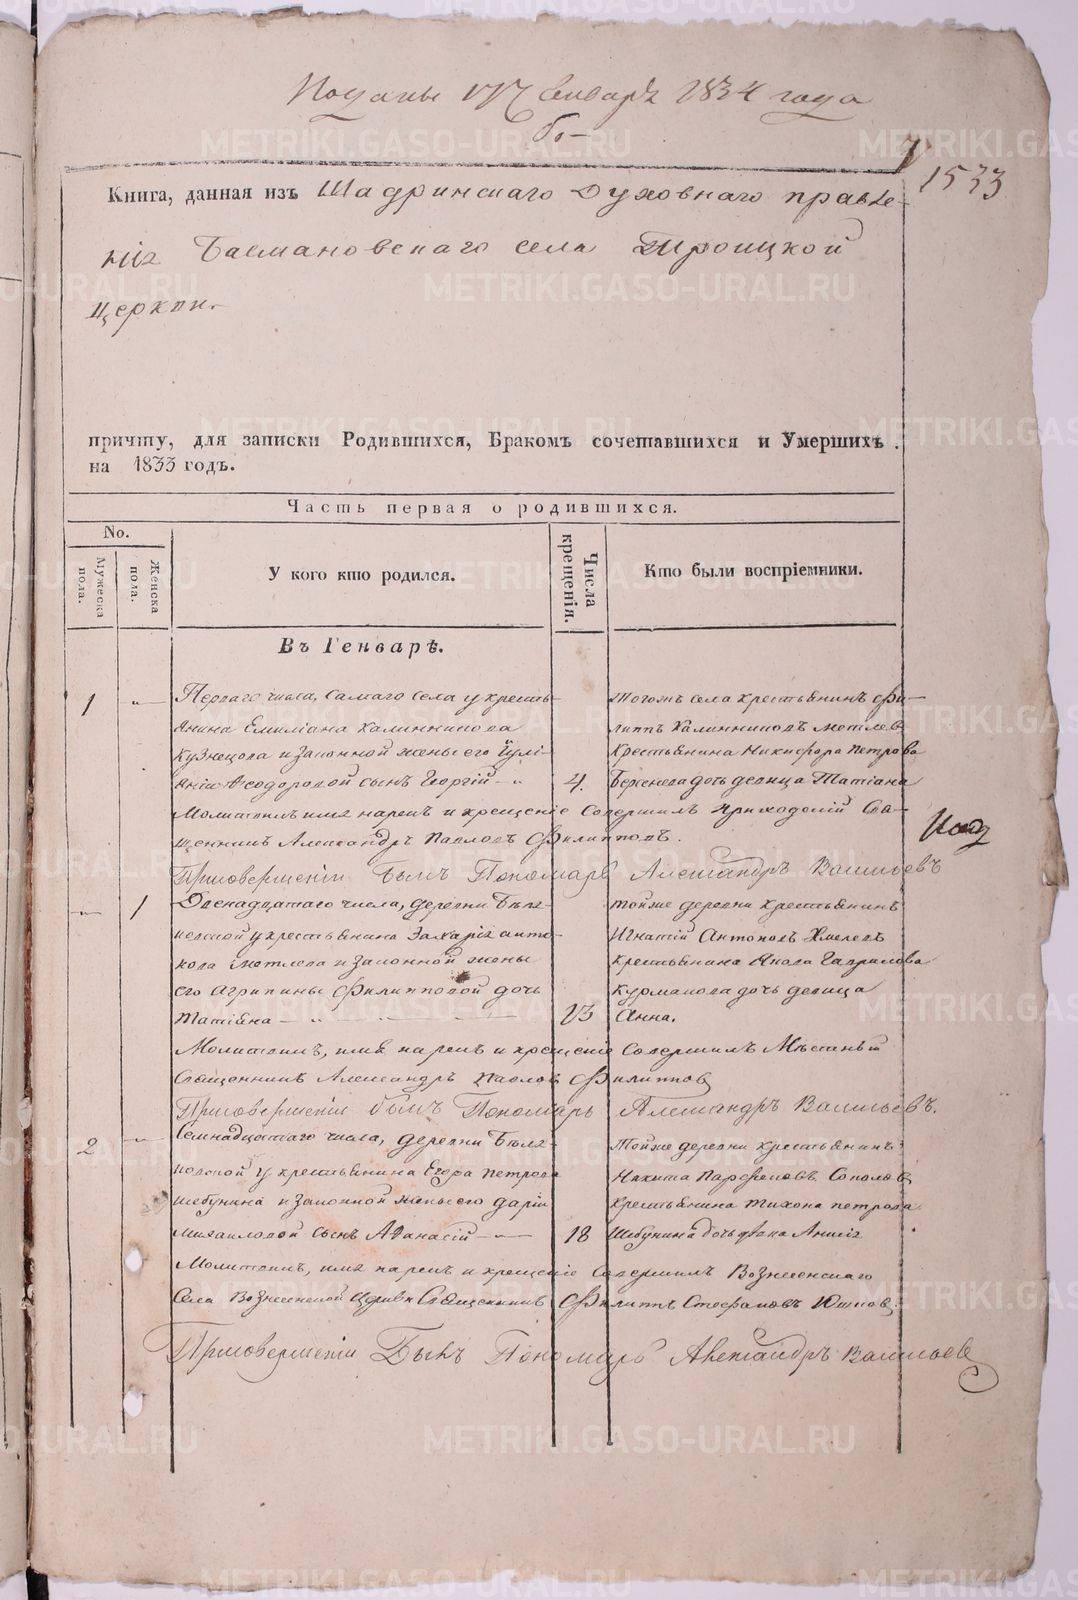 Поданы 17 Генваря 1834 года
1533
Книга, данная изъ Шадринскаго Духовнаго правле-
нія Басмановскаго села Троицкой
церкви.
причту, для записки Родившихся, Бракомъ сочетавшихся и Умершихъ
на 1833 годъ.
Часть первая о родившихся.
No.
Мужеска пола.
Женска пола.
У кого кто родился.
Числа крещенія.
Кто были воспріемники.
Въ Генварѣ.
1 Перваго числа, самаго села у кресть-
янина Емиліана Калинникова
Кузнецова и законной жены его Іулі-
аніи Ѳеодоровой сынъ Георгій 4.
Тогожъ села крестьянинъ Фи-
липпъ Калинниковъ Мотлев
крестьянина Никифора Петрова
Береснева дочь девица Татіана
Молитвилъ имя нарекъ и крещеніе совершилъ приходскій Свя-
щенникъ Александръ Павловъ Филипповъ.
Присовершеніи былъ Пономарь Александръ Васильевъ
1 Двенадцатаго числа, деревни Бѣля-
ковской у крестьянина Захарія Анто-
нова Мотлева и законной жены
его Агрипины Филипповой дочь
Татіана 13
тойже деревни крестьянинъ
Игнатій Антоновъ Хмелевъ
крестьянина Якова Гаврилова
Курманова дочь девица
Анна.
Молитвилъ, имя нарекъ и крещеніе совершилъ Мѣстный
Священникъ Александръ Павловъ Филипповъ
Присовершеніи былъ Пономарь Александръ Васильевъ.
2 Семнадцатаго числа, деревни Бѣля-
ковской у крестьянина Егора Петрова
Шебунина и законной жены его Даріи
Михаиловой сынъ Аѳанасій 18
тойже деревни крестьянинъ
Никита Парфеновъ Соколовъ
крестьянина Тихона Петрова
Шебунина дочь девка Анисія
Молитвилъ, имя нарекъ и крещеніе совершилъ Вознесенскаго
села Вознесенской Церкви Священникъ Филиппъ Стефановъ
Присовершеніи Былъ Пономарь Александръ Васильевъ
METRIKI.GASO-URAL.RU